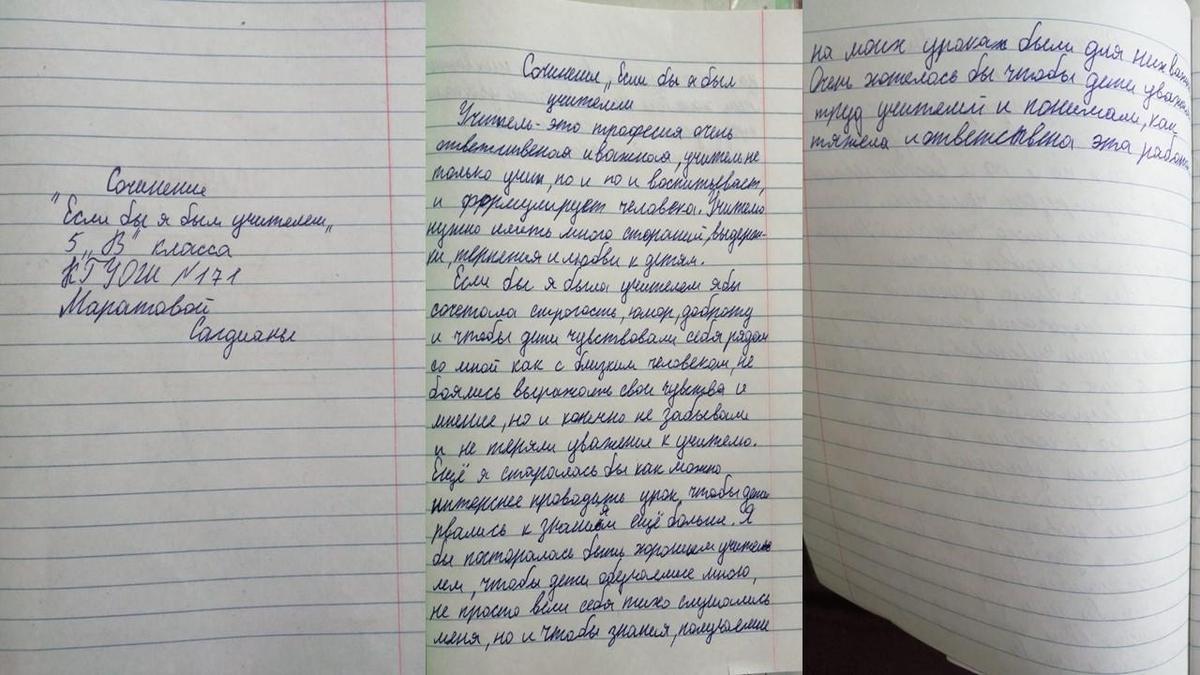 Сочинение
"Если бы я был учителем„
5 „В" класса
КГУОШ №171
Маратовой
Сагдианы
Сочинение „Если бы я был
учителем
Учитель - это профессия очень
ответственая и важная, учитель не
только учит, но и но и воспитывает,
и формулирует человека. Учителю
нужно иметь много стораний, выдерж-
ки, терпения и любви к детям.
Если бы я была учителем я бы
сочетала строгость, юмор, доброту
и чтобы дети чувствовали себя рядом
со мной как с близким человеком, не
боялись выражать свои чувства и
мнение, но и конечно не забывали
и не теряли уважение к учителю.
Ещё я старалась бы как можно
интерснее проводить урок, чтобы дети
рвались к знаниям ещё больше. Я
бы посторалась быть хорошем учите
лем, чтобы дети обучаемые мною,
не просто вели себя тихо слушались
меня, но и чтобы знания, получаемые
на моих уроках были для них
Очень хотелось бы чтобы дети
труд учителей и понимали, как
тяжела и ответствена эта